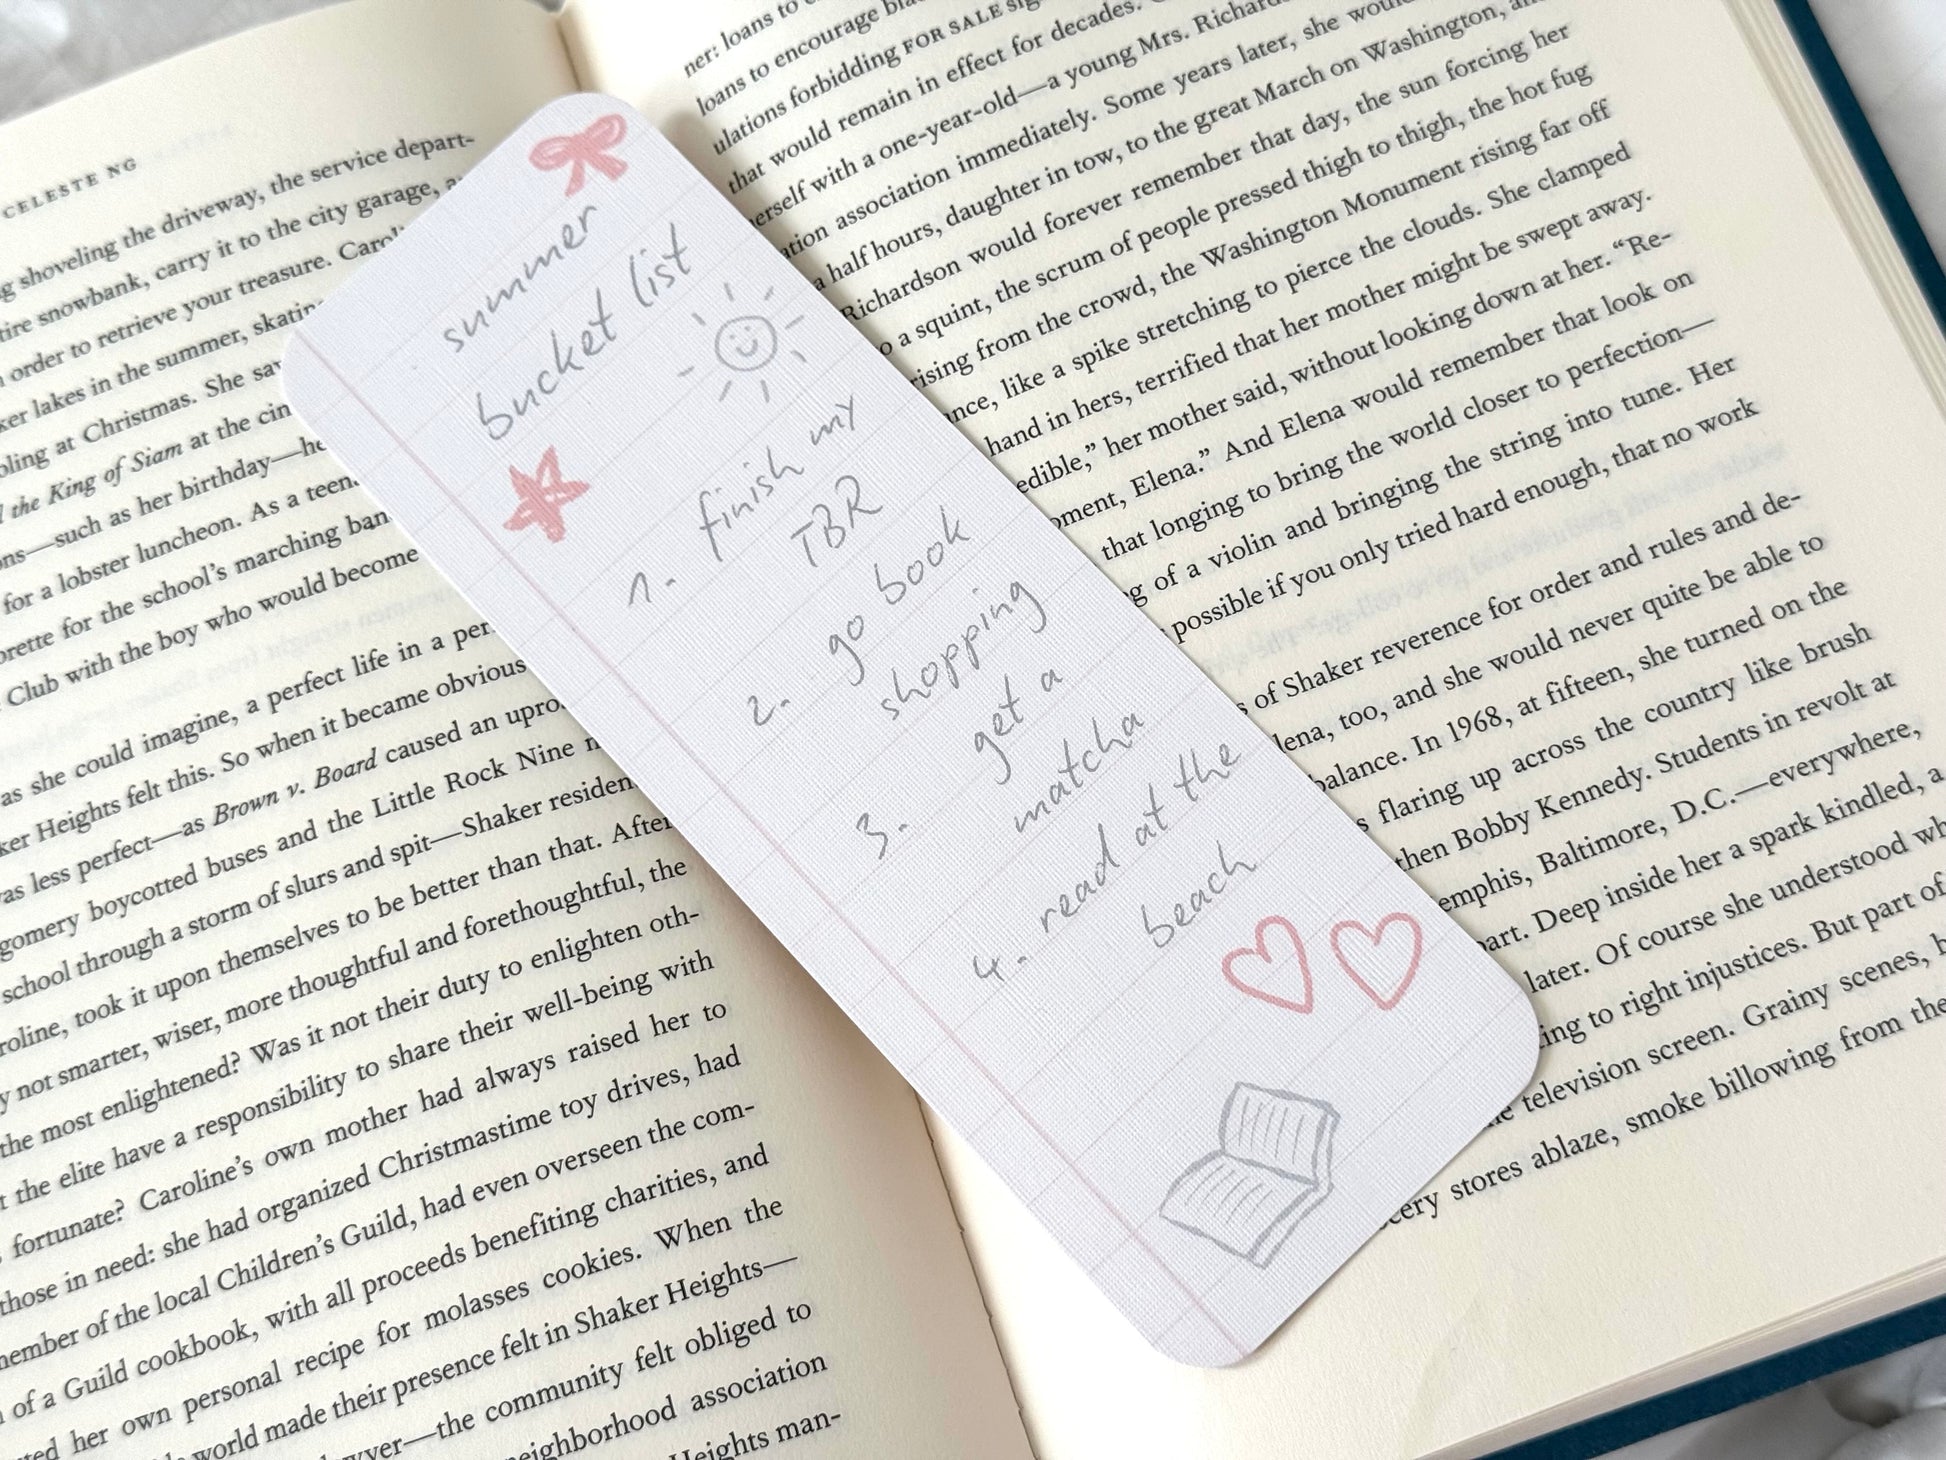 CELESTE NG
g shoveling the driveway, the service depart-
tire snowbank, carry it to the city garage,
order to retrieve your treasure.
ker lakes in the summer,
oling at Christmas. She
the King of Siam at the
ons—such as her birthday—he
for a lobster luncheon. As a
orette for the school's marching
Club with the boy who would become
as she could imagine, a perfect life in a
ker Heights felt this. So when it became obvious
was less perfect—as Brown v. Board caused an
gomery boycotted buses and the Little Rock Nine
school through a storm of slurs and spit—Shaker
roline, took it upon themselves to be better than that. After
y not smarter, wiser, more thoughtful and forethoughtful, the
the most enlightened? Was it not their duty to enlighten oth-
t the elite have a responsibility to share their well-being with
fortunate? Caroline's own mother had always raised her to
those in need: she had organized Christmastime toy drives, had
member of the local Children's Guild, had even overseen the com-
of a Guild cookbook, with all proceeds benefiting charities, and
ted her own personal recipe for molasses cookies. When the
world made their presence felt in Shaker Heights—
wyer—the community felt obliged to
neighborhood association
Heights man-
summer
bucket list
1. finish my
TBR
2. go book
shopping
3. get a
matcha
4. read at the
beach
ner: loans to
loans to encourage
ulations forbidding FOR SALE
that would remain in effect for decades.
herself with a one-year-old—a young Mrs.
ation association immediately. Some years later, she
a half hours, daughter in tow, to the great March on Washington,
Richardson would forever remember that day, the sun forcing her
o a squint, the scrum of people pressed thigh to thigh, the hot fug
rising from the crowd, the Washington Monument rising far off
ance, like a spike stretching to pierce the clouds. She clamped
hand in hers, terrified that her mother might be swept away.
edible,” her mother said, without looking down at her. “Re-
oment, Elena.” And Elena would remember that look on
that longing to bring the world closer to perfection—
g of a violin and bringing the string into tune. Her
possible if you only tried hard enough, that no work
s of Shaker reverence for order and rules and de-
lena, too, and she would never quite be able to
balance. In 1968, at fifteen, she turned on the
s flaring up across the country like brush
then Bobby Kennedy. Students in revolt at
emphis, Baltimore, D.C.—everywhere,
part. Deep inside her a spark kindled, a
later. Of course she understood
ting to right injustices. But part of
e television screen. Grainy scenes,
cery stores ablaze, smoke billowing from the